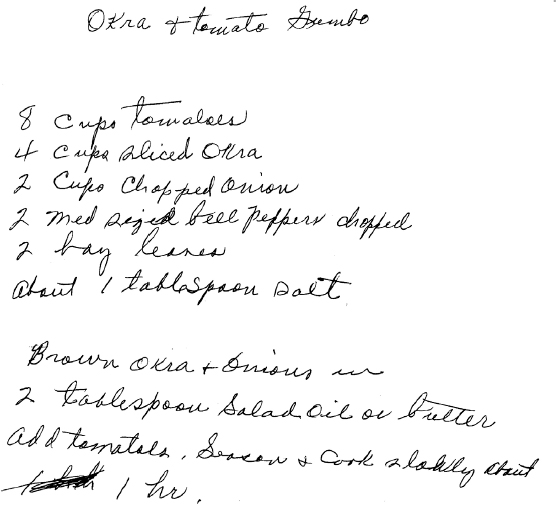 Okra + tomato Gumbo
8 Cups tomatoes
4 Cups sliced Okra
2 Cups Chopped Onion
2 med sized bell Peppers chopped
2 bay leaves
About 1 tablespoon salt
Brown Okra + Onions in
2 tablespoon Salad Oil or butter
Add tomatoes. Season & Cook slowly about
1 hr.